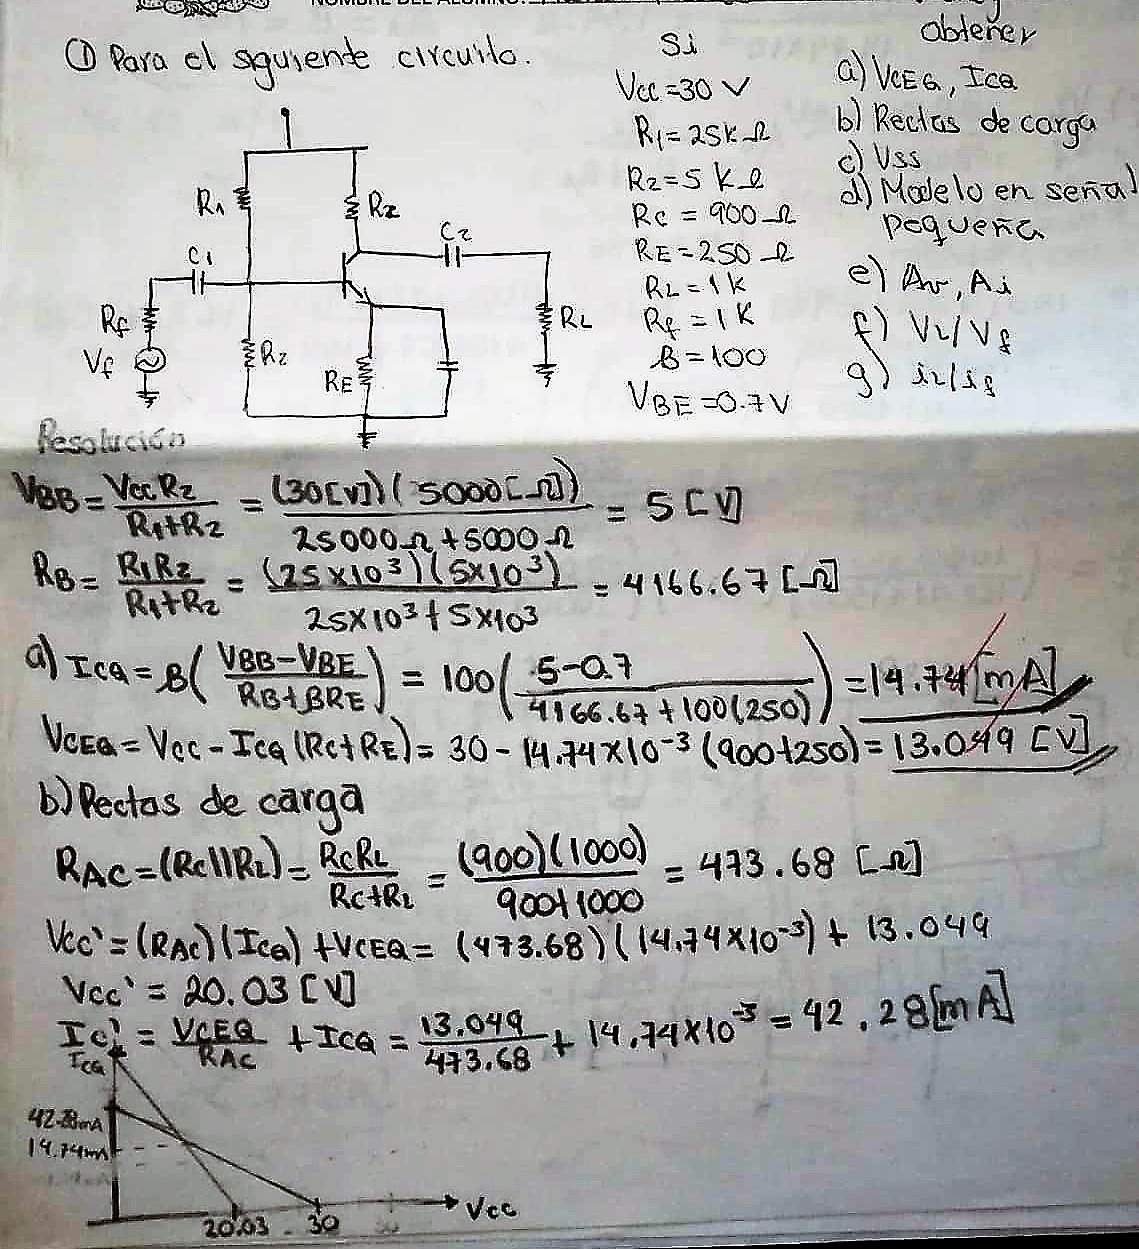 NOMBRE DEL ALUMNO:
① Para el sguiente circuito.
Si
Vcc = 30 V
R1 = 25k Ω
R2 = 5 k Ω
Rc = 900 Ω
RE = 250 Ω
RL = 1 k
Rf = 1 K
β = 100
VBE = 0.7 V
obtener
a) VCEQ, ICQ
b) Rectas de carga
c) Vss
d) Modelo en señal
pequeña
e) Av, Ai
f) VL/Vf
g) iL/if
R1
R2
C2
C1
Rf
RL
Vf
R2
RE
Resolución
VBB = VccR2 / R1+R2 = (30[V])(5000[Ω]) / 25000Ω + 5000Ω = 5 [V]
RB = R1R2 / R1+R2 = (25×10³)(5×10³) / 25×10³ + 5×10³ = 4166.67 [Ω]
a) ICQ = β( VBB-VBE / RB+βRE ) = 100( 5-0.7 / 4166.67 + 100(250) ) = 14.74 [mA]
VCEQ = Vcc - ICQ (Rc+RE) = 30 - 14.74×10⁻³ (900+250) = 13.049 [V]
b) Rectas de carga
RAC = (Rc||RL) = RcRL / Rc+RL = (900)(1000) / 900+1000 = 473.68 [Ω]
Vcc' = (RAC)(ICQ) + VCEQ = (473.68)(14.74×10⁻³) + 13.049
Vcc' = 20.03 [V]
Ic' = VCEQ / RAC + ICQ = 13.049 / 473.68 + 14.74×10⁻³ = 42.28 [mA]
ICQ
42.28mA
14.74m
20.03 30 Vcc